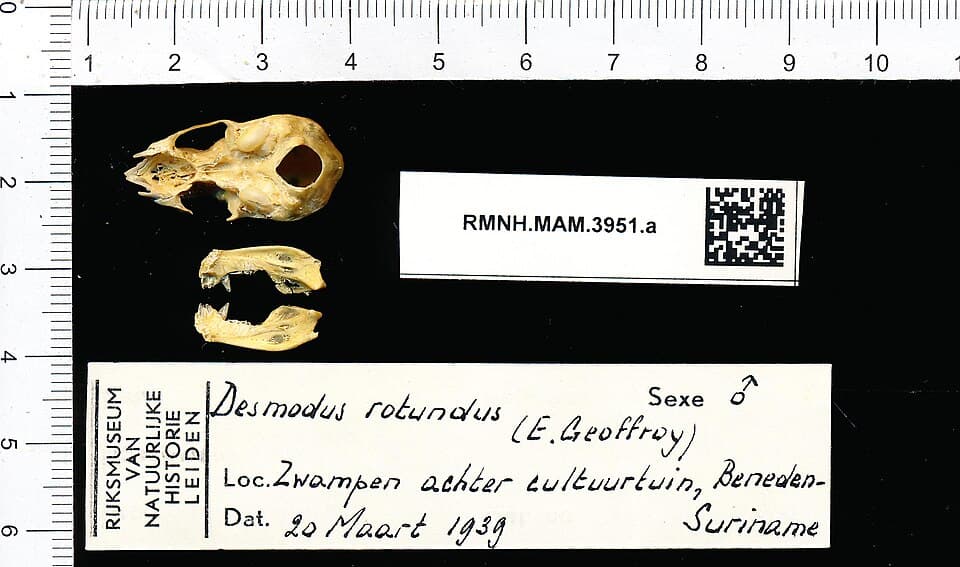 0
1 2 3 4 5 6 7 8 9 10
1
2
3
4
5
6
RMNH.MAM.3951.a
RIJKSMUSEUM
VAN
NATUURLIJKE
HISTORIE
LEIDEN
Desmodus rotundus Sexe ♂
(E. Geoffroy)
Loc. Zwampen achter cultuurtuin, Beneden-
Suriname
Dat. 20 Maart 1939